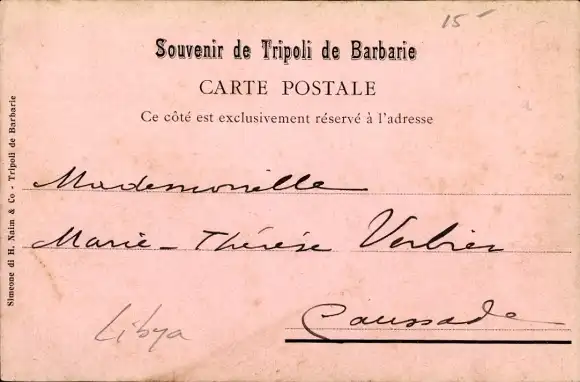 15-
Souvenir de Tripoli de Barbarie
CARTE POSTALE
Ce côté est exclusivement réservé à l'adresse
Mademoiselle
Marie-Thérèse Verbier
Caussade
Libya
Simeone di H. Naim & Co - Tripoli de Barbarie